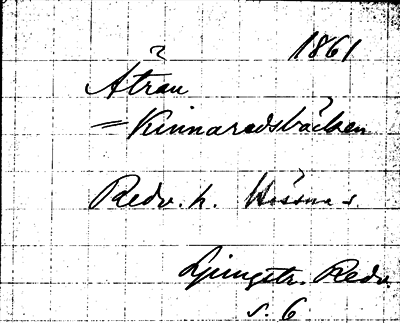 1861
Ätran
= Kinnaredsbäcken
Redv. h. Hössna s.
Ljungstr. Redv.
s. 6